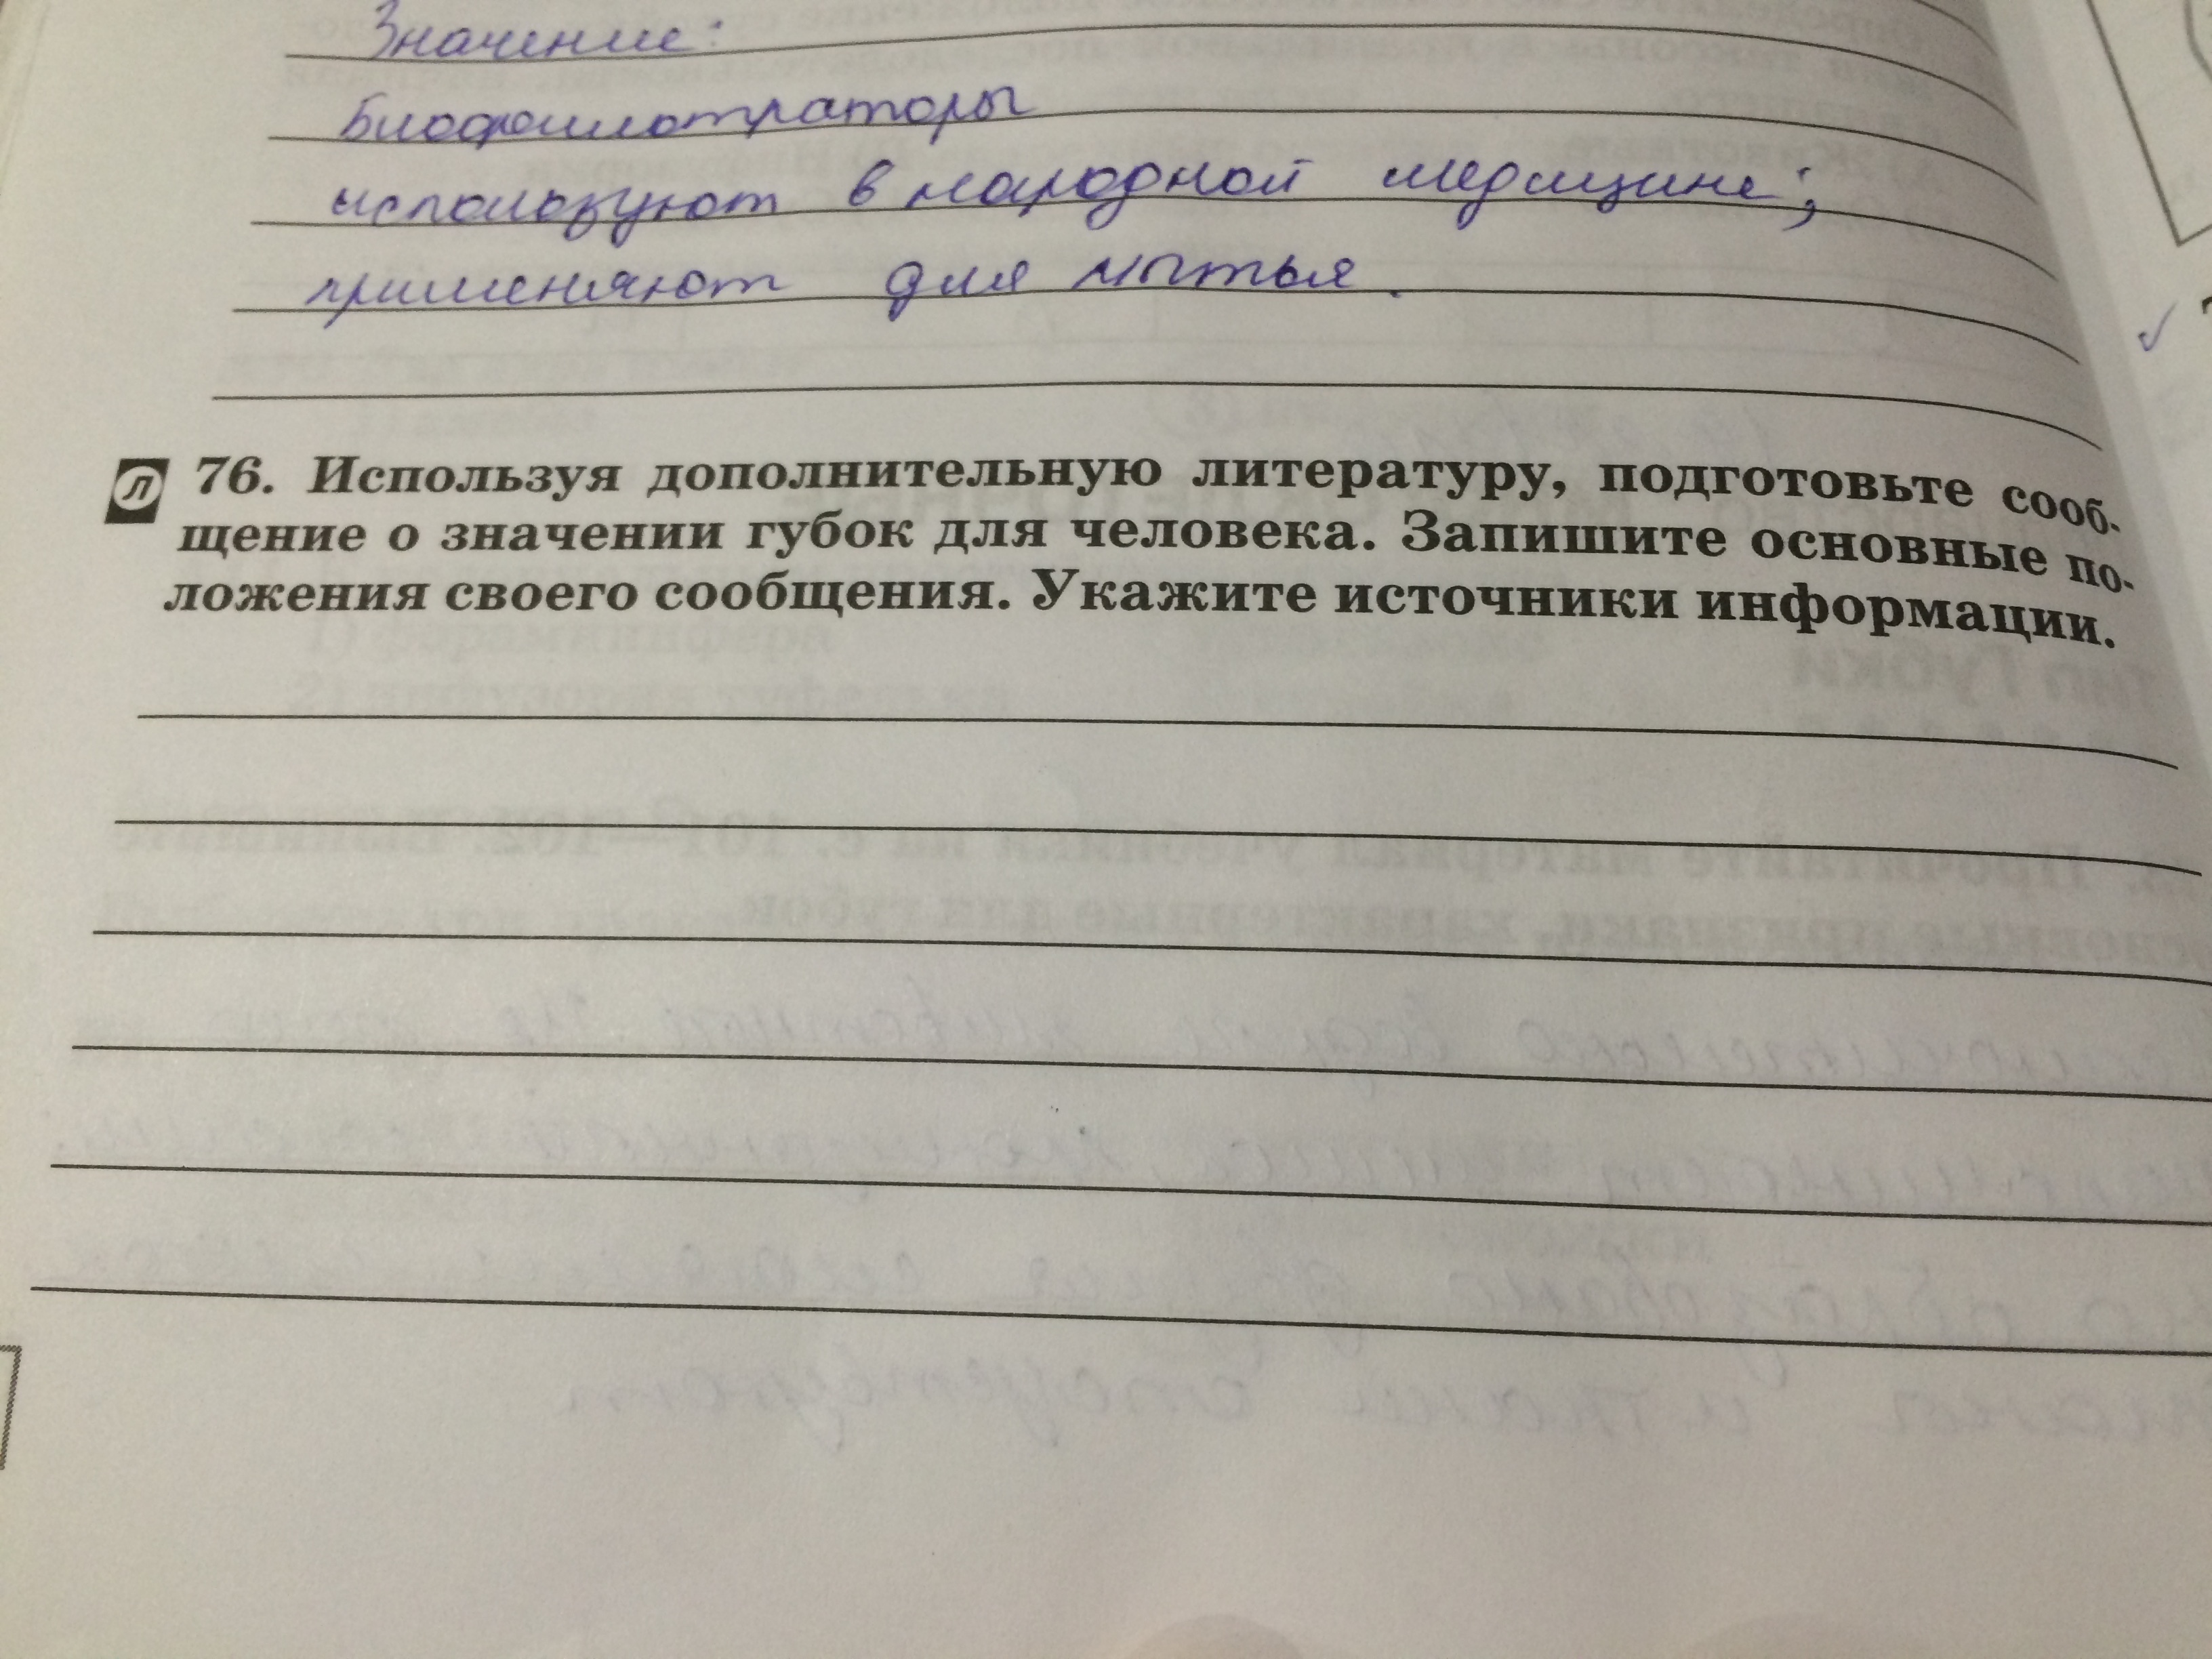 Значение:
Биофильтраторы
используют в народной медицине;
применяют для мытья.
Л 76. Используя дополнительную литературу, подготовьте сооб-
щение о значении губок для человека. Запишите основные по-
ложения своего сообщения. Укажите источники информации.